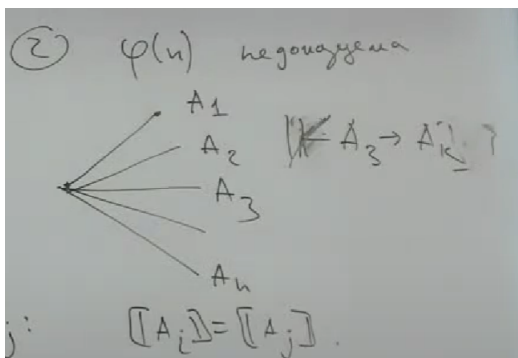 ② φ(n) недоказуема
A1
A2
A3
An
A3 → A
j: [[Ai]] = [[Aj]].